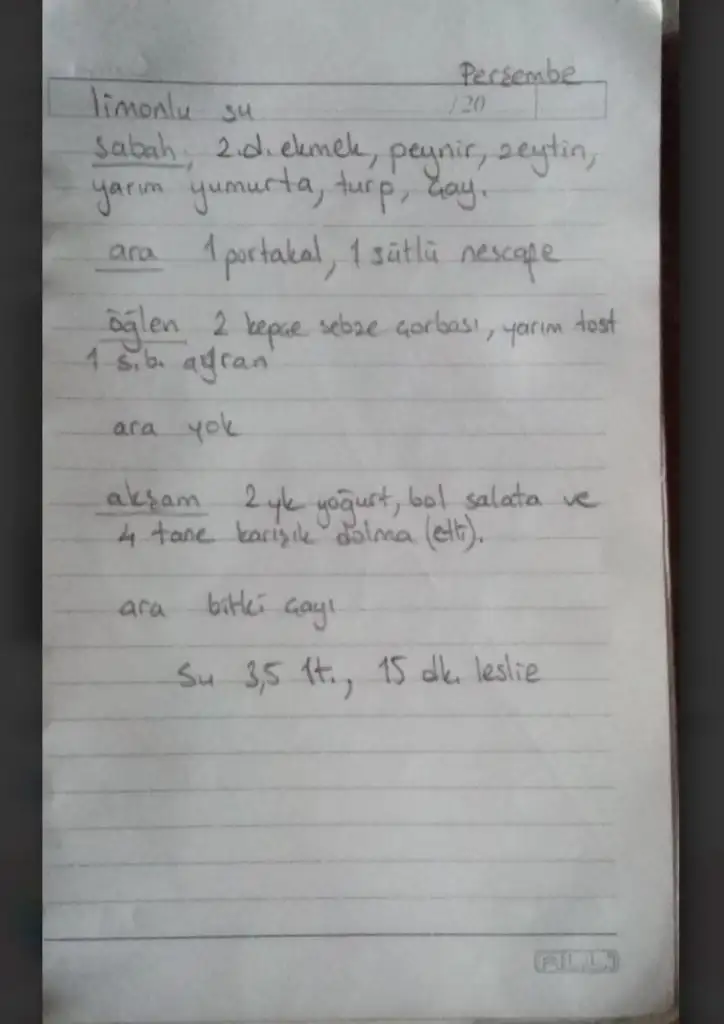 Perşembe
limonlu su /20
sabah, 2.d. ekmek, peynir, zeytin,
yarım yumurta, turp, çay.
ara 1 portakal, 1 sütlü nescafe
öğlen 2 kepçe sebze çorbası, yarım tost
1 s.b. ayran
ara yok
akşam 2 yk yoğurt, bol salata ve
4 tane karışık dolma (etli).
ara bitki çayı
su 3,5 lt., 15 dk. leslie